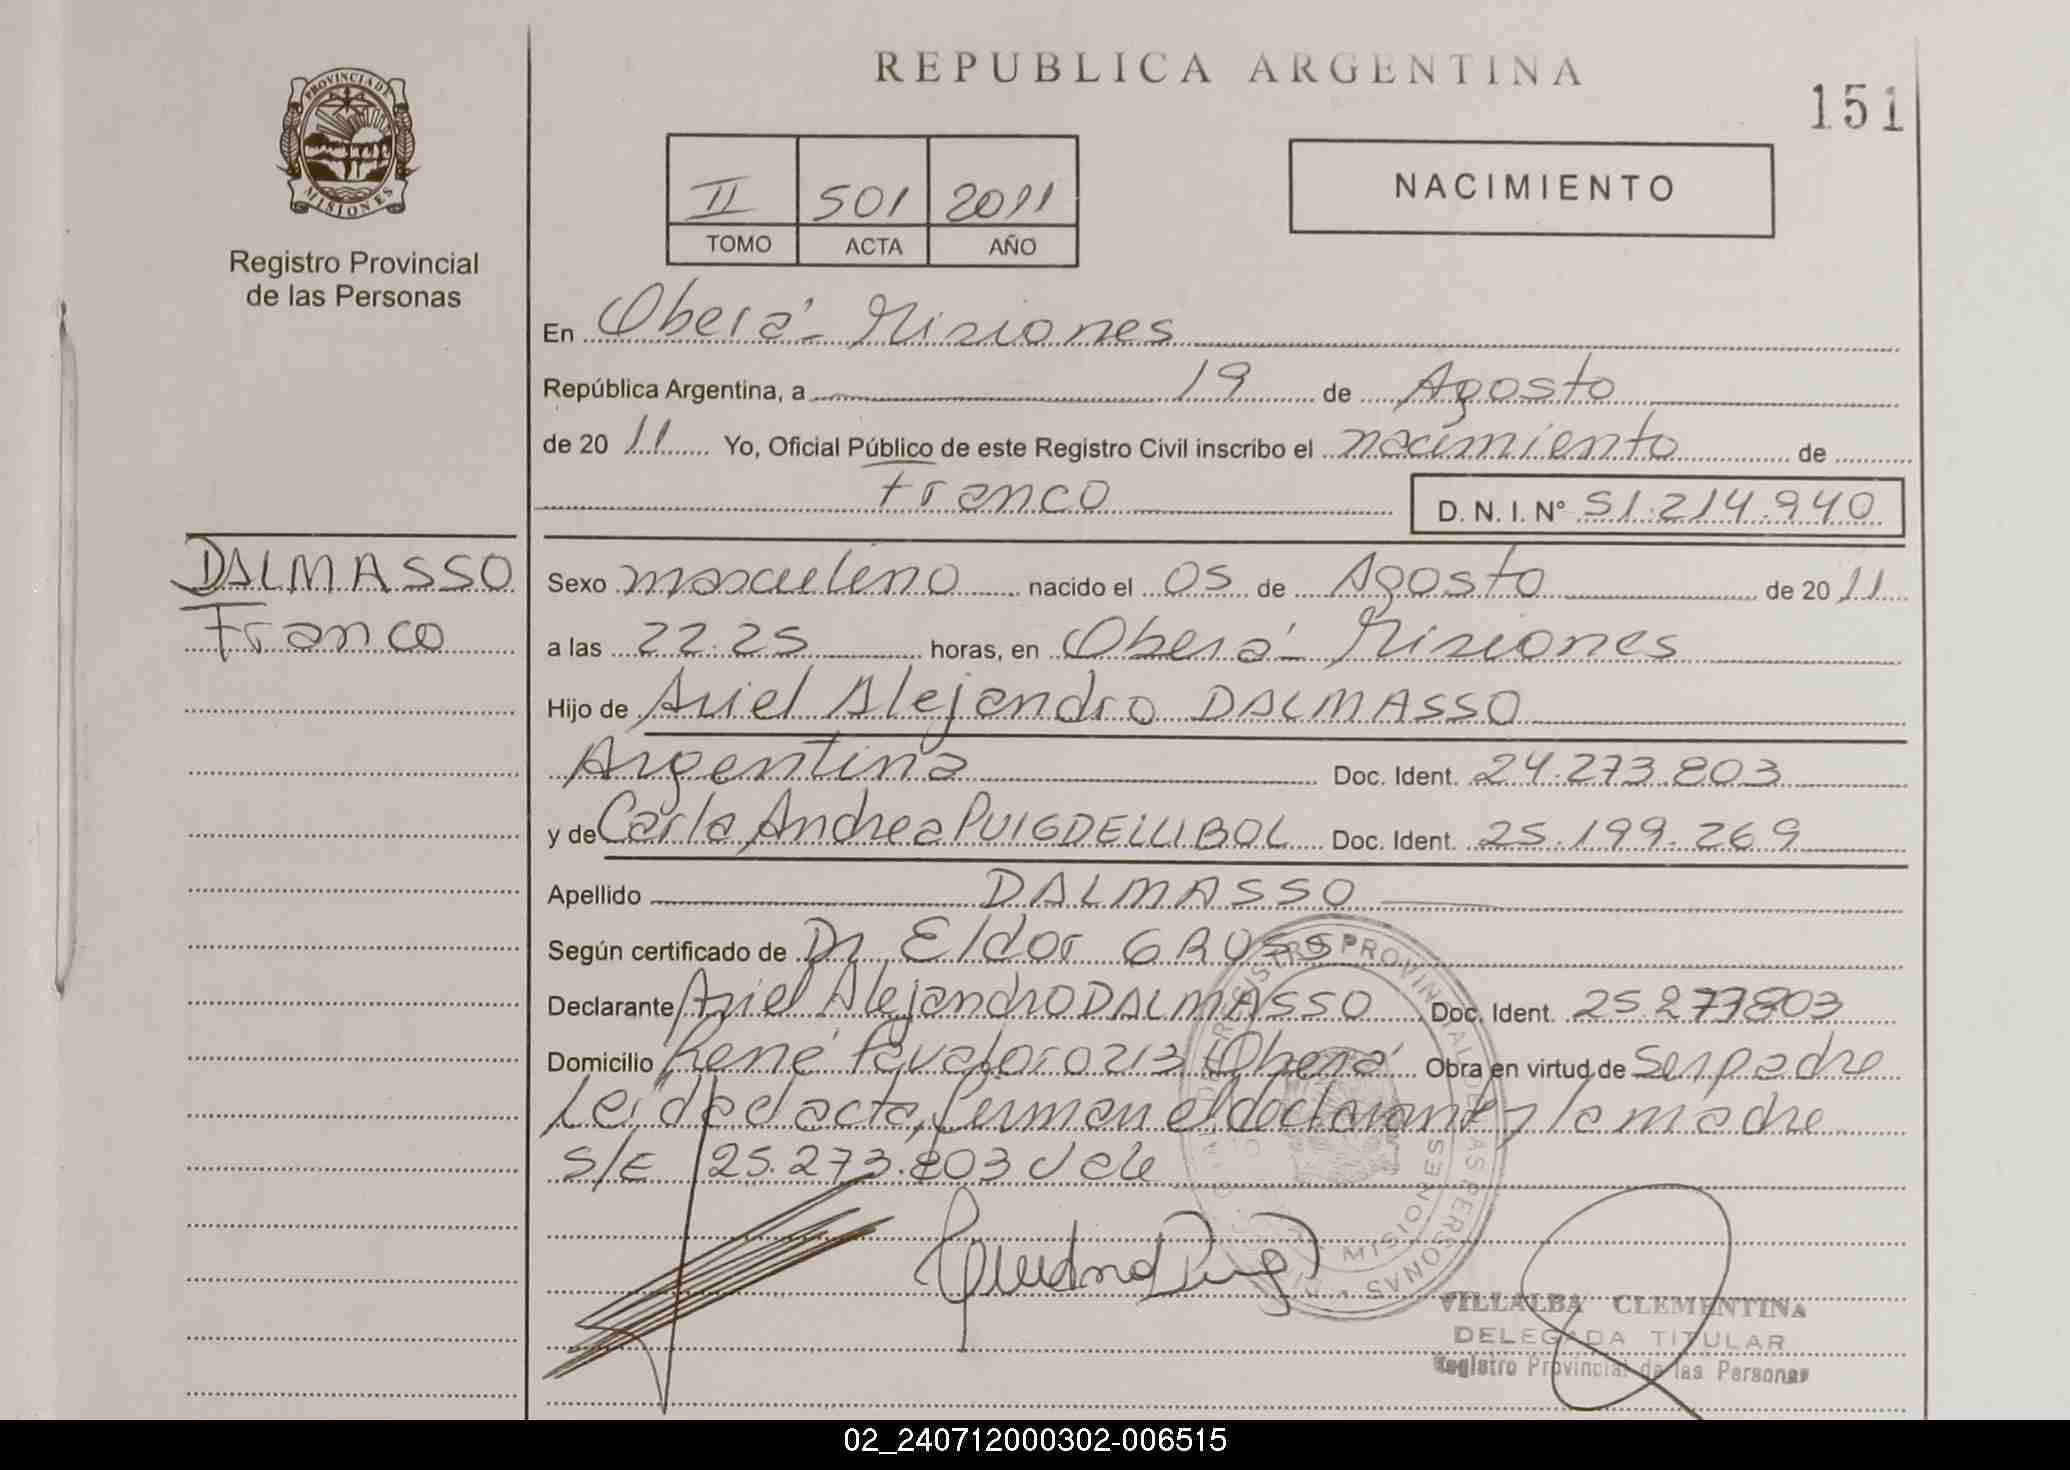 REPUBLICA ARGENTINA
151
PROVINCIA DE
MISIONES
Registro Provincial
de las Personas
II 501 2011
TOMO ACTA AÑO
NACIMIENTO
En Oberá - Misiones
República Argentina, a 19 de Agosto
de 20 11 Yo, Oficial Público de este Registro Civil inscribo el nacimiento de
Franco D. N. I. Nº 51.214.940
DALMASSO
Franco
Sexo masculino nacido el 05 de Agosto de 20 11
a las 22.25 horas, en Oberá - Misiones
Hijo de Ariel Alejandro DALMASSO
Argentina Doc. Ident. 24.273.803
y de Carla Andrea PUIGDELLIBOL Doc. Ident. 25.199.269
Apellido DALMASSO
Según certificado de Dr Eldor GRUSS
Declarante Ariel Alejandro DALMASSO Doc. Ident. 25.273803
Domicilio René Favaloro 0213 Oberá Obra en virtud de Ser padre
Leída el acta, firman el declarante y la madre
S/E 25.273.803 vale
REGISTRO PROVINCIAL DE LAS PERSONAS
MISIONES
VILLALBA CLEMENTINA
DELEGADA TITULAR
Registro Provincial de las Personas
02_240712000302-006515